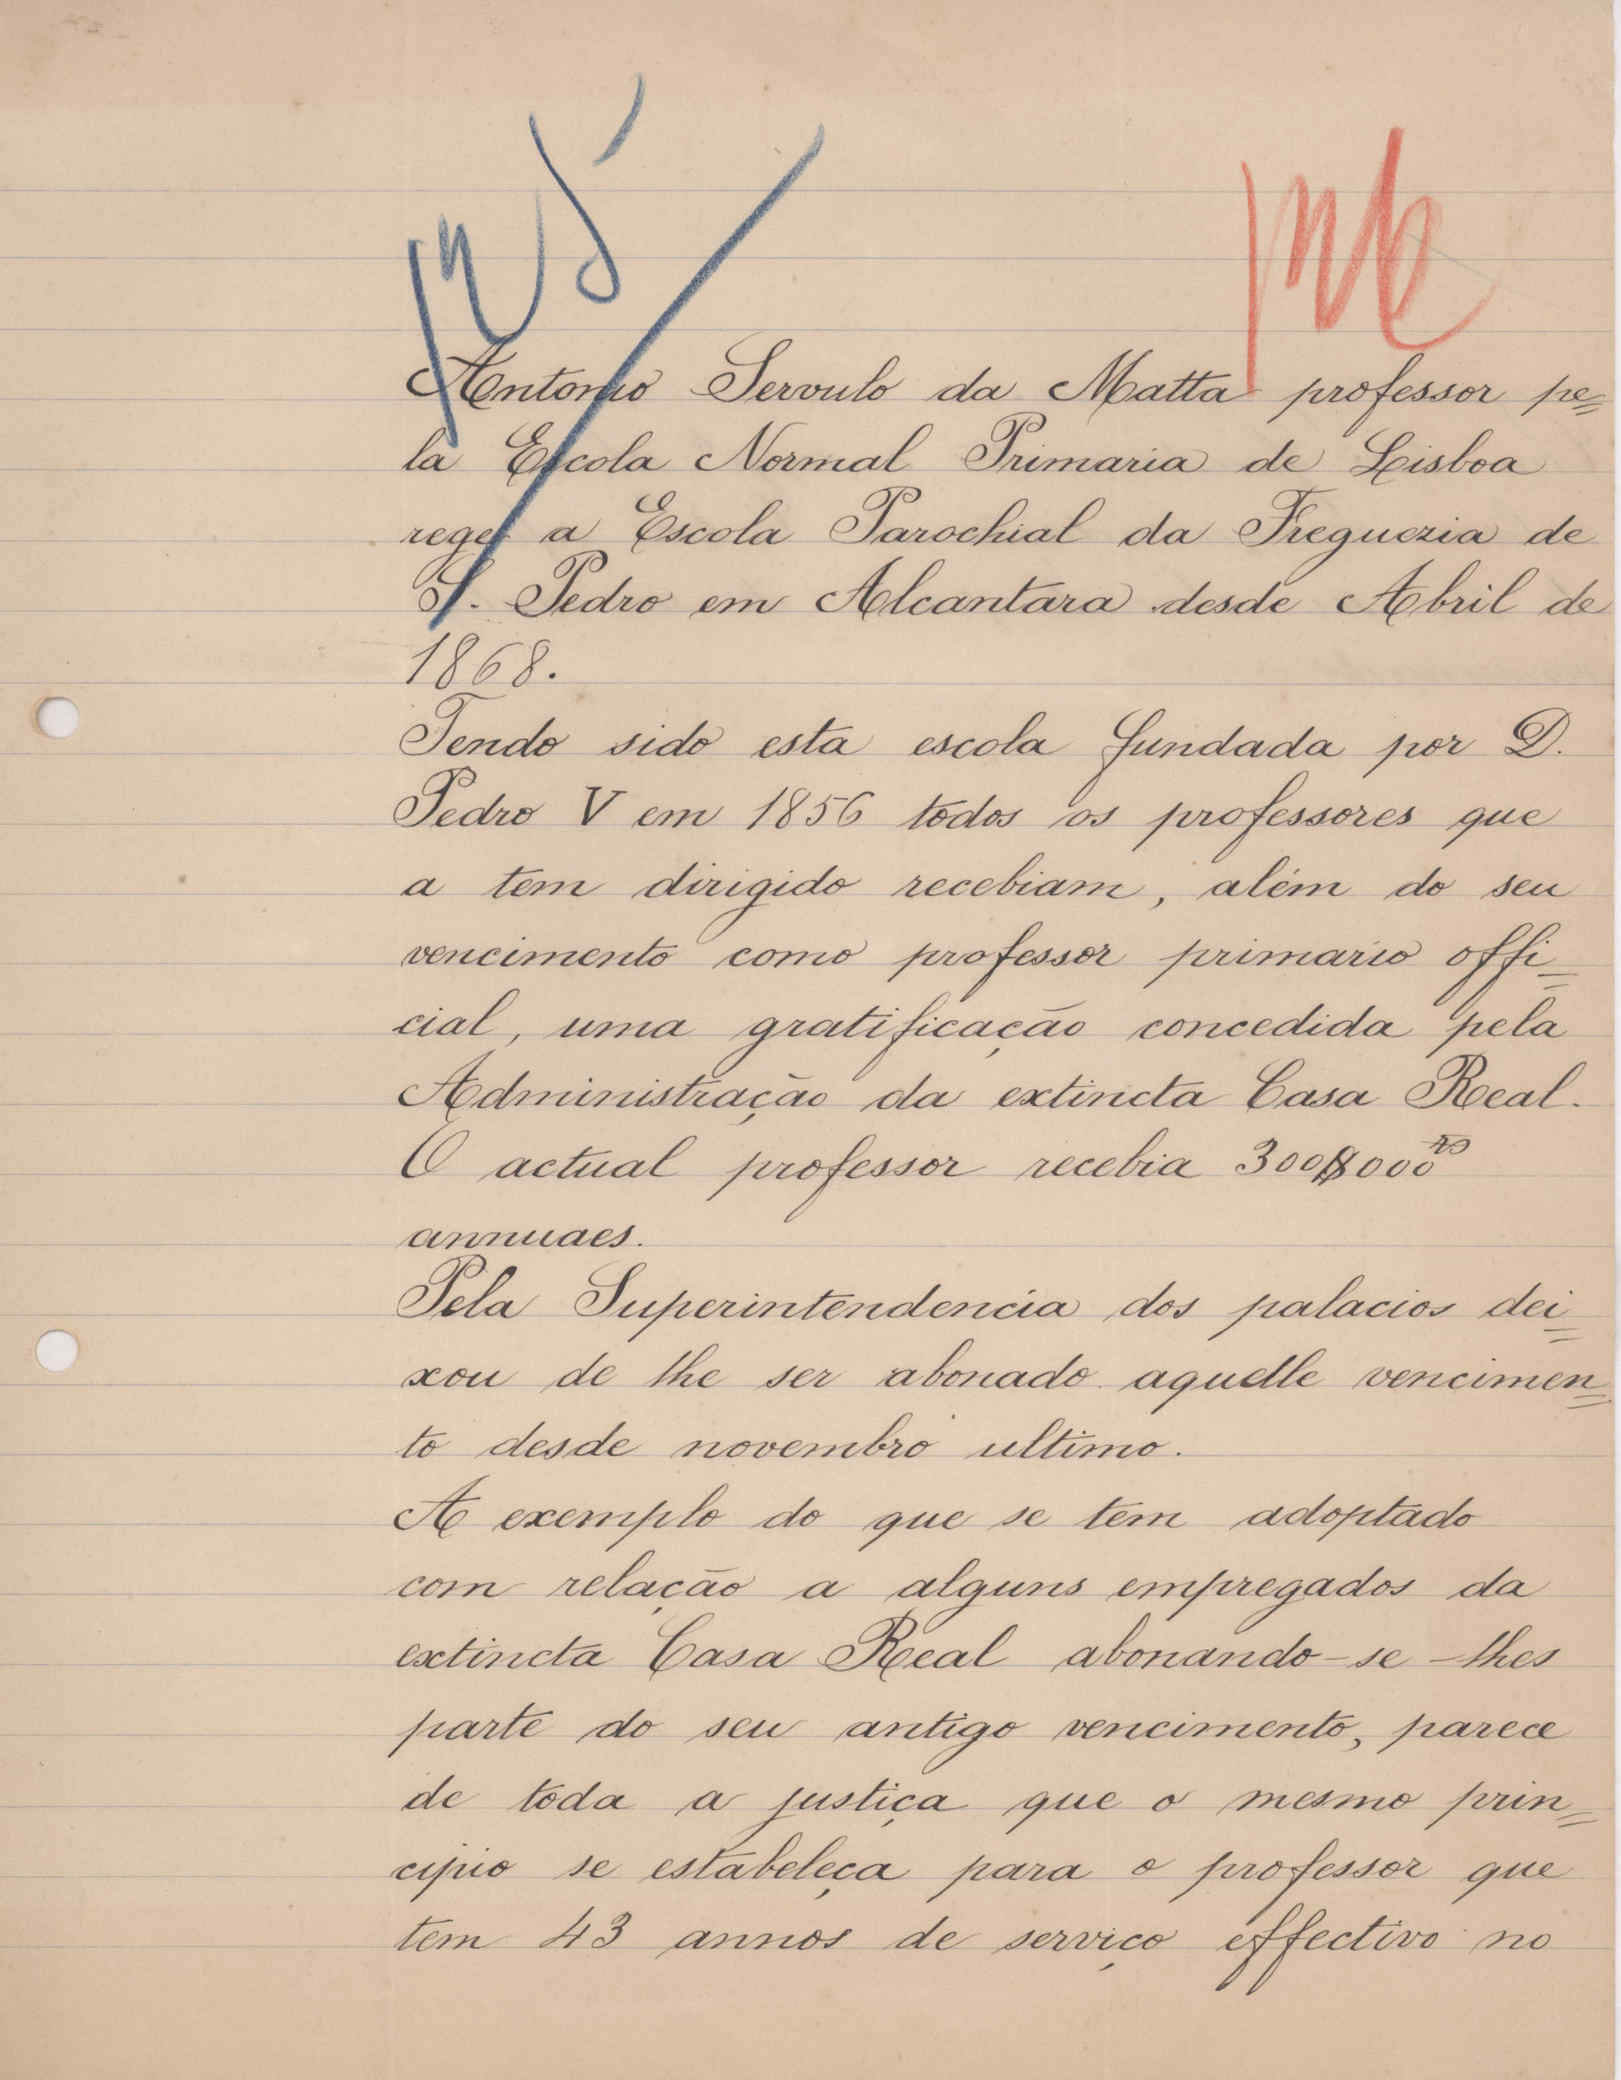 Antonio Servulo da Matta professor pe=
la Escola Normal Primaria de Lisboa
rege a Escola Parochial da Freguezia de
S. Pedro em Alcantara desde Abril de
1868.
Tendo sido esta escola fundada por D.
Pedro V em 1856 todos os professores que
a tem dirigido recebiam, além do seu
vencimento como professor primario offi=
cial, uma gratificação concedida pela
Administração da extincta Casa Real.
O actual professor recebia 300$000 rs
annuaes.
Pela Superintendencia dos palacios dei=
xou de lhe ser abonado aquelle vencimen=
to desde novembro ultimo.
A exemplo do que se tem adoptado
com relação a alguns empregados da
extincta Casa Real abonando-se-lhes
parte do seu antigo vencimento, parece
de toda a justiça que o mesmo prin=
cipio se estabeleça para o professor que
tem 43 annos de serviço effectivo no